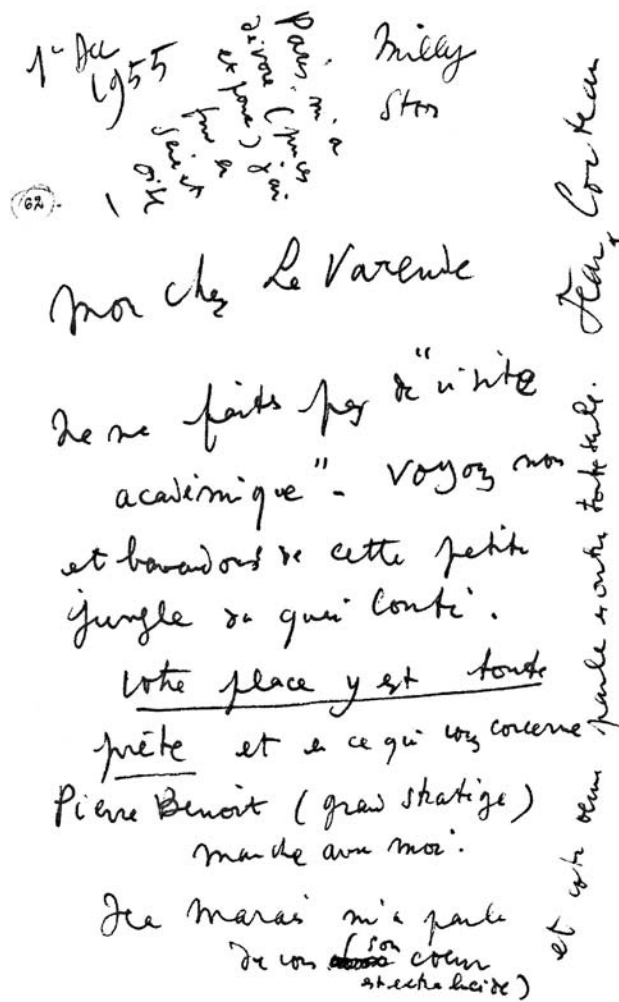 1er Dec
1955
Milly
S et O
Paris m'a
dévoré (puces
et poux) j'ai
fui en
Seine et
Oise
62
Mon cher La Varende
Je ne faits pas de "visite
académique" - Voyons nous
et bavardons de cette petite
jungle du quai Conti.
Votre place y est toute
prête et en ce qui vous concerne
Pierre Benoit (grand stratège)
marche avec moi.
Jean Marais m'a parlé
de vous (son coeur
est extra lucide)
et votre oeuvre parle toute seule.
Jean Cocteau